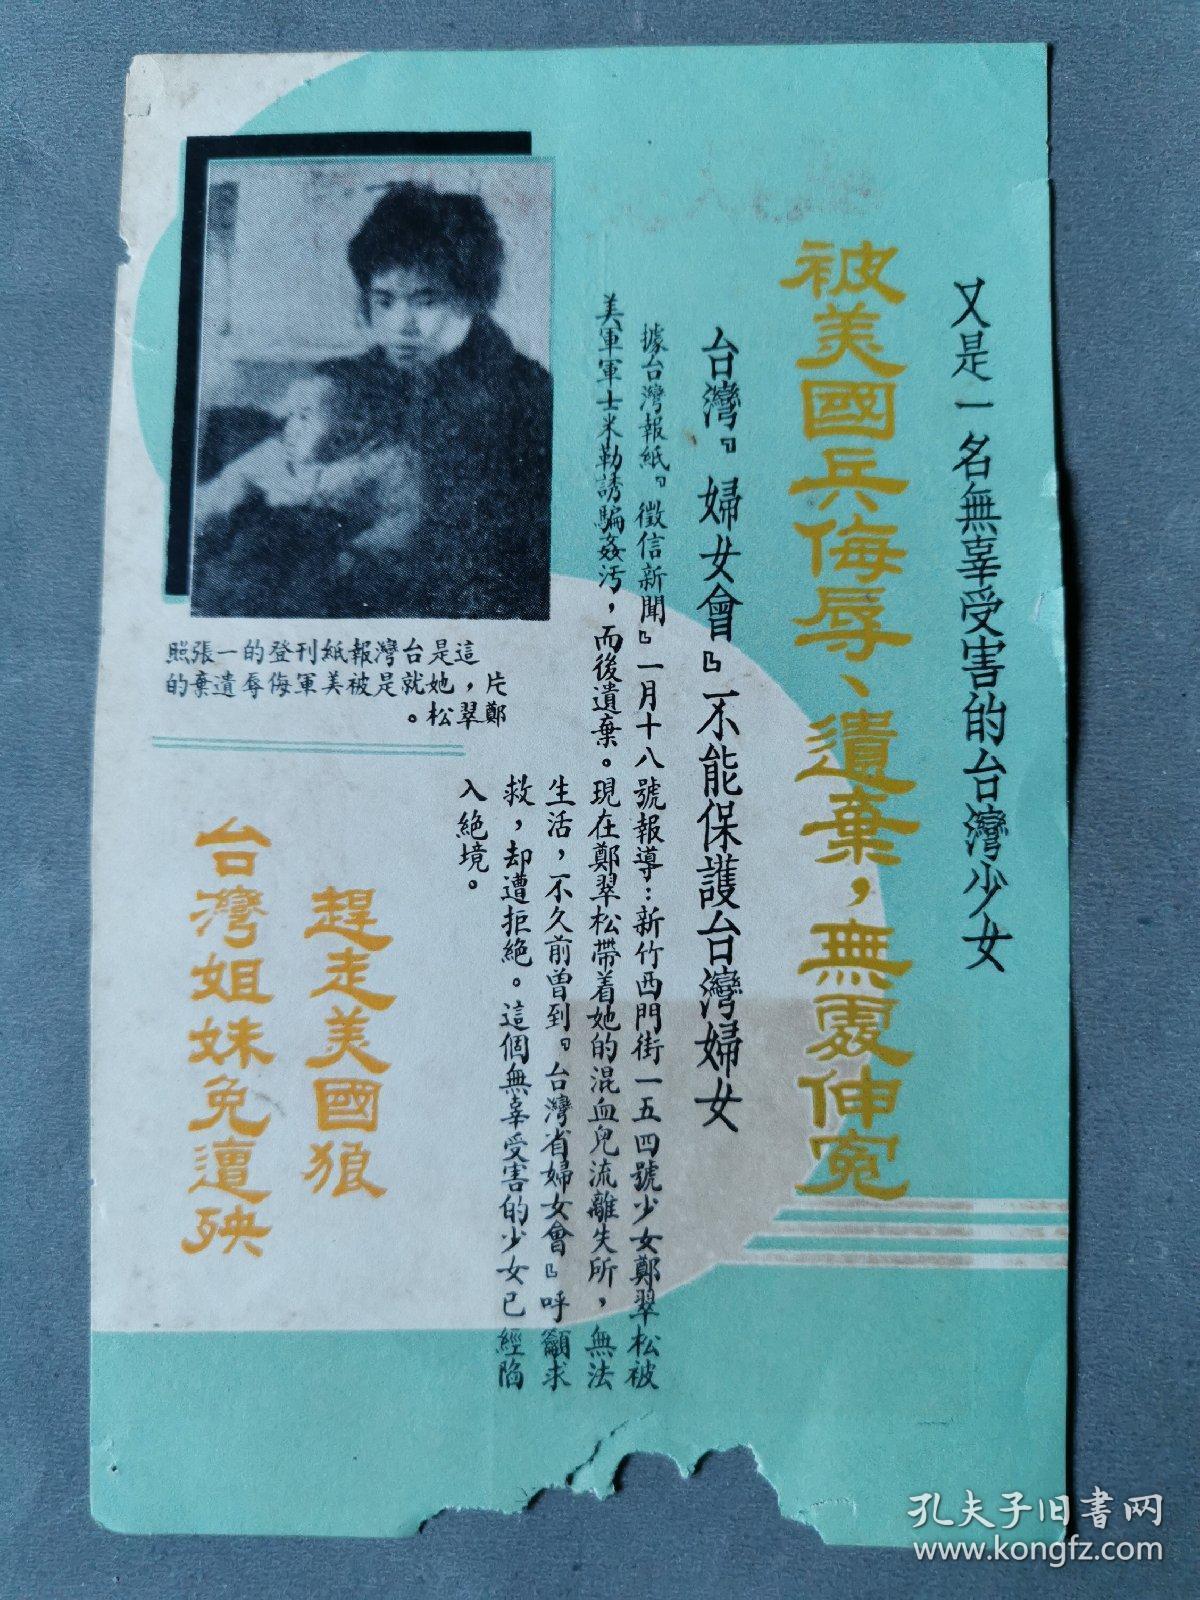 又是一名無辜受害的台灣少女
被美國兵侮辱、遺棄，無處伸冤
台灣『婦女會』不能保護台灣婦女
據台灣報紙『徵信新聞』一月十八號報導：新竹西門街一五四號少女鄭翠松被
美軍軍士米勒誘騙姦污，而後遺棄。現在鄭翠松帶着她的混血兒流離失所，無法
生活，不久前曾到『台灣省婦女會』呼籲求
救，却遭拒絕。這個無辜受害的少女已經陷
入絕境。
這是台灣報紙刊登的一張照
片，她就是被美軍侮辱遺棄的
鄭翠松。
趕走美國狼
台灣姐妹免遭殃
孔夫子旧书网
www.kongfz.com